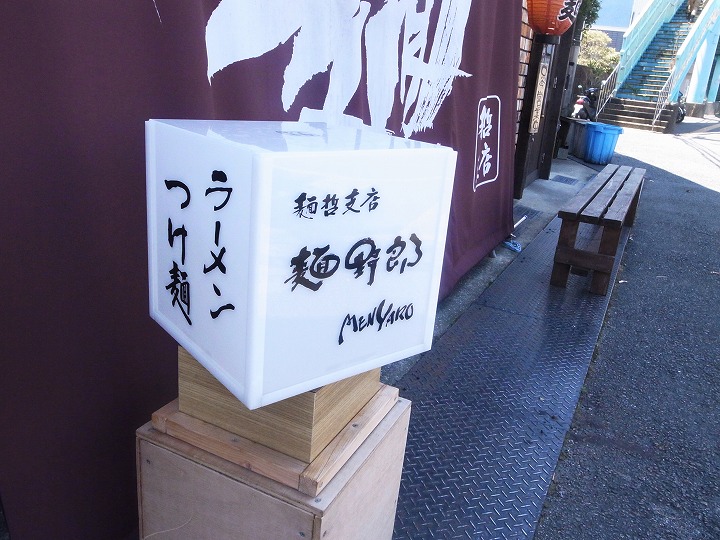 ラーメン
つけ麺
麺哲支店
麺野郎
MENYARO
哲店